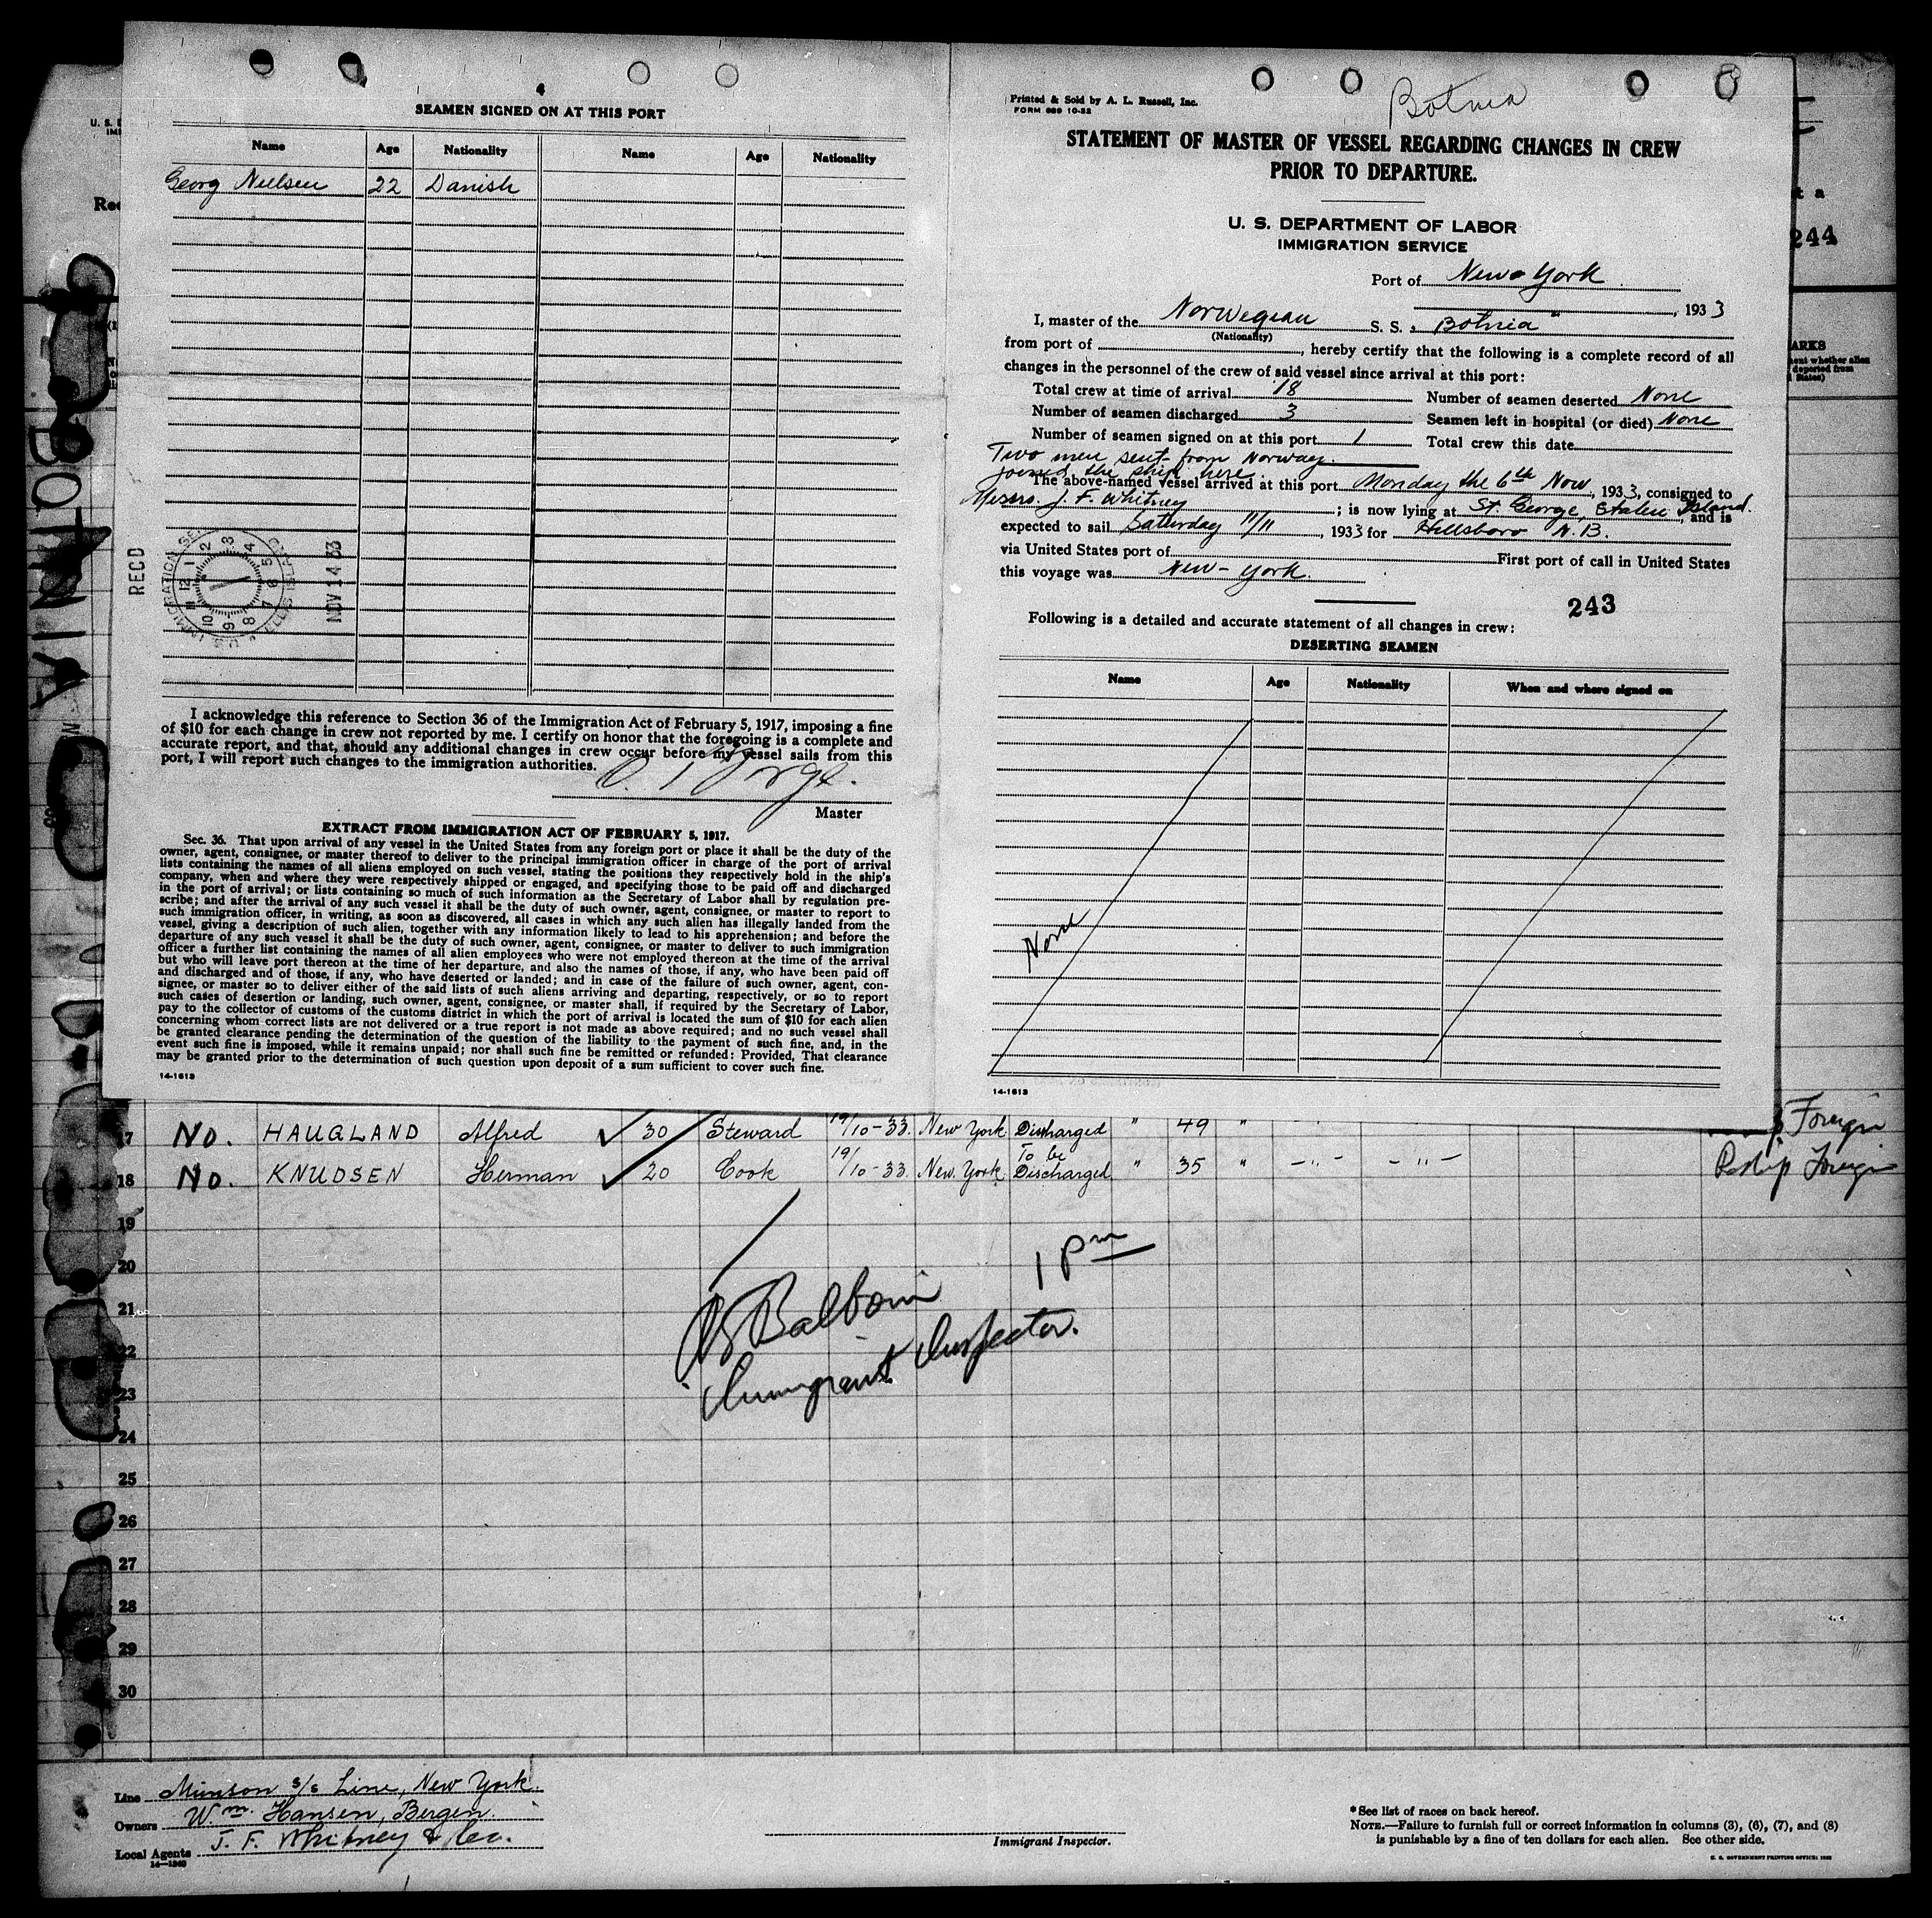 4
SEAMEN SIGNED ON AT THIS PORT
Name Age Nationality Name Age Nationality
Georg Nielsen 22 Danish
RECD
U. S. IMMIGRATION SERVICE ELLIS ISLAND
12 1 2 3 4 5 6 7 8 9 10 11
NOV 14 33
I acknowledge this reference to Section 36 of the Immigration Act of February 5, 1917, imposing a fine
of $10 for each change in crew not reported by me. I certify on honor that the foregoing is a complete and
accurate report, and that, should any additional changes in crew occur before my vessel sails from this
port, I will report such changes to the immigration authorities.
Master
EXTRACT FROM IMMIGRATION ACT OF FEBRUARY 5, 1917.
Sec. 36. That upon arrival of any vessel in the United States from any foreign port or place it shall be the duty of the
owner, agent, consignee, or master thereof to deliver to the principal immigration officer in charge of the port of arrival
lists containing the names of all aliens employed on such vessel, stating the positions they respectively hold in the ship's
company, when and where they were respectively shipped or engaged, and specifying those to be paid off and discharged
in the port of arrival; or lists containing so much of such information as the Secretary of Labor shall by regulation pre-
scribe; and after the arrival of any such vessel it shall be the duty of such owner, agent, consignee, or master to report to
such immigration officer, in writing, as soon as discovered, all cases in which any such alien has illegally landed from the
vessel, giving a description of such alien, together with any information likely to lead to his apprehension; and before the
departure of any such vessel it shall be the duty of such owner, agent, consignee, or master to deliver to such immigration
officer a further list containing the names of all alien employees who were not employed thereon at the time of the arrival
but who will leave port thereon at the time of her departure, and also the names of those, if any, who have been paid off
and discharged and of those, if any, who have deserted or landed; and in case of the failure of such owner, agent, con-
signee, or master so to deliver either of the said lists of such aliens arriving and departing, respectively, or so to report
such cases of desertion or landing, such owner, agent, consignee, or master shall, if required by the Secretary of Labor,
pay to the collector of customs of the customs district in which the port of arrival is located the sum of $10 for each alien
concerning whom correct lists are not delivered or a true report is not made as above required; and no such vessel shall
be granted clearance pending the determination of the question of the liability to the payment of such fine, and, in the
event such fine is imposed, while it remains unpaid; nor shall such fine be remitted or refunded: Provided, That clearance
may be granted prior to the determination of such question upon deposit of a sum sufficient to cover such fine.
14-1613
Printed & Sold by A. L. Russell, Inc.
FORM 689 10-32
Botnia
STATEMENT OF MASTER OF VESSEL REGARDING CHANGES IN CREW
PRIOR TO DEPARTURE.
U. S. DEPARTMENT OF LABOR
IMMIGRATION SERVICE
Port of New York
, 1933
I, master of the Norwegian S. S. "Botnia"
(Nationality)
from port of , hereby certify that the following is a complete record of all
changes in the personnel of the crew of said vessel since arrival at this port:
Total crew at time of arrival 18 Number of seamen deserted None
Number of seamen discharged 3 Seamen left in hospital (or died) None
Number of seamen signed on at this port 1 Total crew this date
Two men sent from Norway
joined the ship here.
The above-named vessel arrived at this port Monday the 6th Nov, 1933, consigned to
Messrs. J. F. Whitney ; is now lying at St. George, Staten Island., and is
expected to sail Saturday 11/11, 1933 for Hillsboro N.B.
via United States port of First port of call in United States
this voyage was New-York.
243
Following is a detailed and accurate statement of all changes in crew:
DESERTING SEAMEN
Name Age Nationality When and where signed on
None
14-1613
244
ARKS
BOTNIA
17 No. HAUGLAND Alfred 30 Steward 19/10-33. New York Discharged " 49 " Foreign
18 No. KNUDSEN Herman 20 Cook 19/10-33. New York To be Discharged " 35 " -"- -"- Reship Foreign
19
20
21
22
23
24
25
26
27
28
29
30
1 pm
Immigrant Inspector.
Line Munson s/s Line, New York.
Owners Wm. Hansen, Bergen.
Local Agents J. F. Whitney & Co.
14-1240
Immigrant Inspector.
*See list of races on back hereof.
NOTE.—Failure to furnish full or correct information in columns (3), (6), (7), and (8)
is punishable by a fine of ten dollars for each alien. See other side.
U. S. GOVERNMENT PRINTING OFFICE: 1932